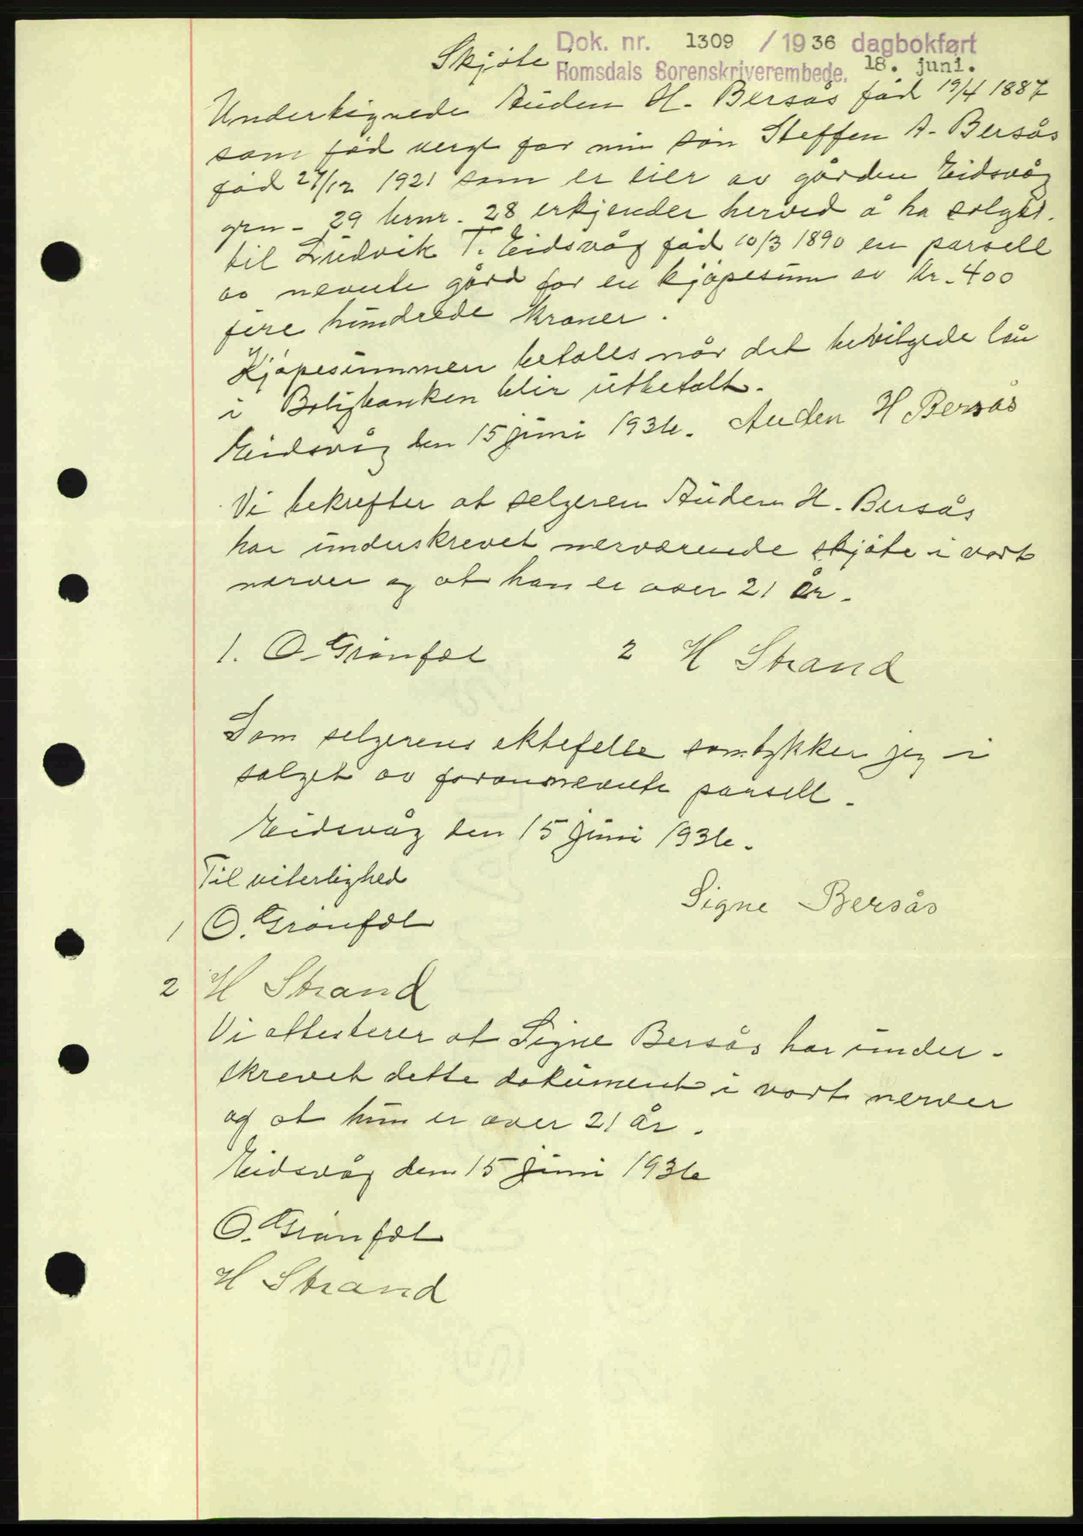 Skjöte.
Dok. nr. 1309 / 1936 dagbokført
Romsdals Sorenskriverembede. 18. juni.
Undertegnede Auden H. Bersås föd 19/4 1887
som föd verge for min sön Steffen A. Bersås
föd 27/12 1921 som er eier av gården Eidsvåg
grn - 29 brnr. 28 erkjender herved å ha solgt
til Ludvik T. Eidsvåg föd 10/3 1890 en parsell
av nevnte gård for en kjöpesum av kr. 400
fire hundrede kroner.
Kjöpesummen betales når det bevilgede lån
i Boligbanken blir utbetalt.
Eidsvåg den 15 juni 1936. Auden H Bersås
Vi bekrefter at selgeren Auden H. Bersås
har underskrevet nerværende skjöte i vort
nerver og at han er over 21 år.
1. O. Grönfœl 2 H Strand
Som selgerens ektefelle samtykker jeg i
salget av forannevnte parsell.
Eidsvåg den 15 juni 1936.
Til viterlighed
Signe Bersås
1 O. Grönfœl
2 H Strand
Vi attesterer at Signe Bersås har under-
skrevet dette dokument i vort nerver
og at hun er over 21 år.
Eidsvåg den 15 juni 1936
O. Grönfœl
H Strand